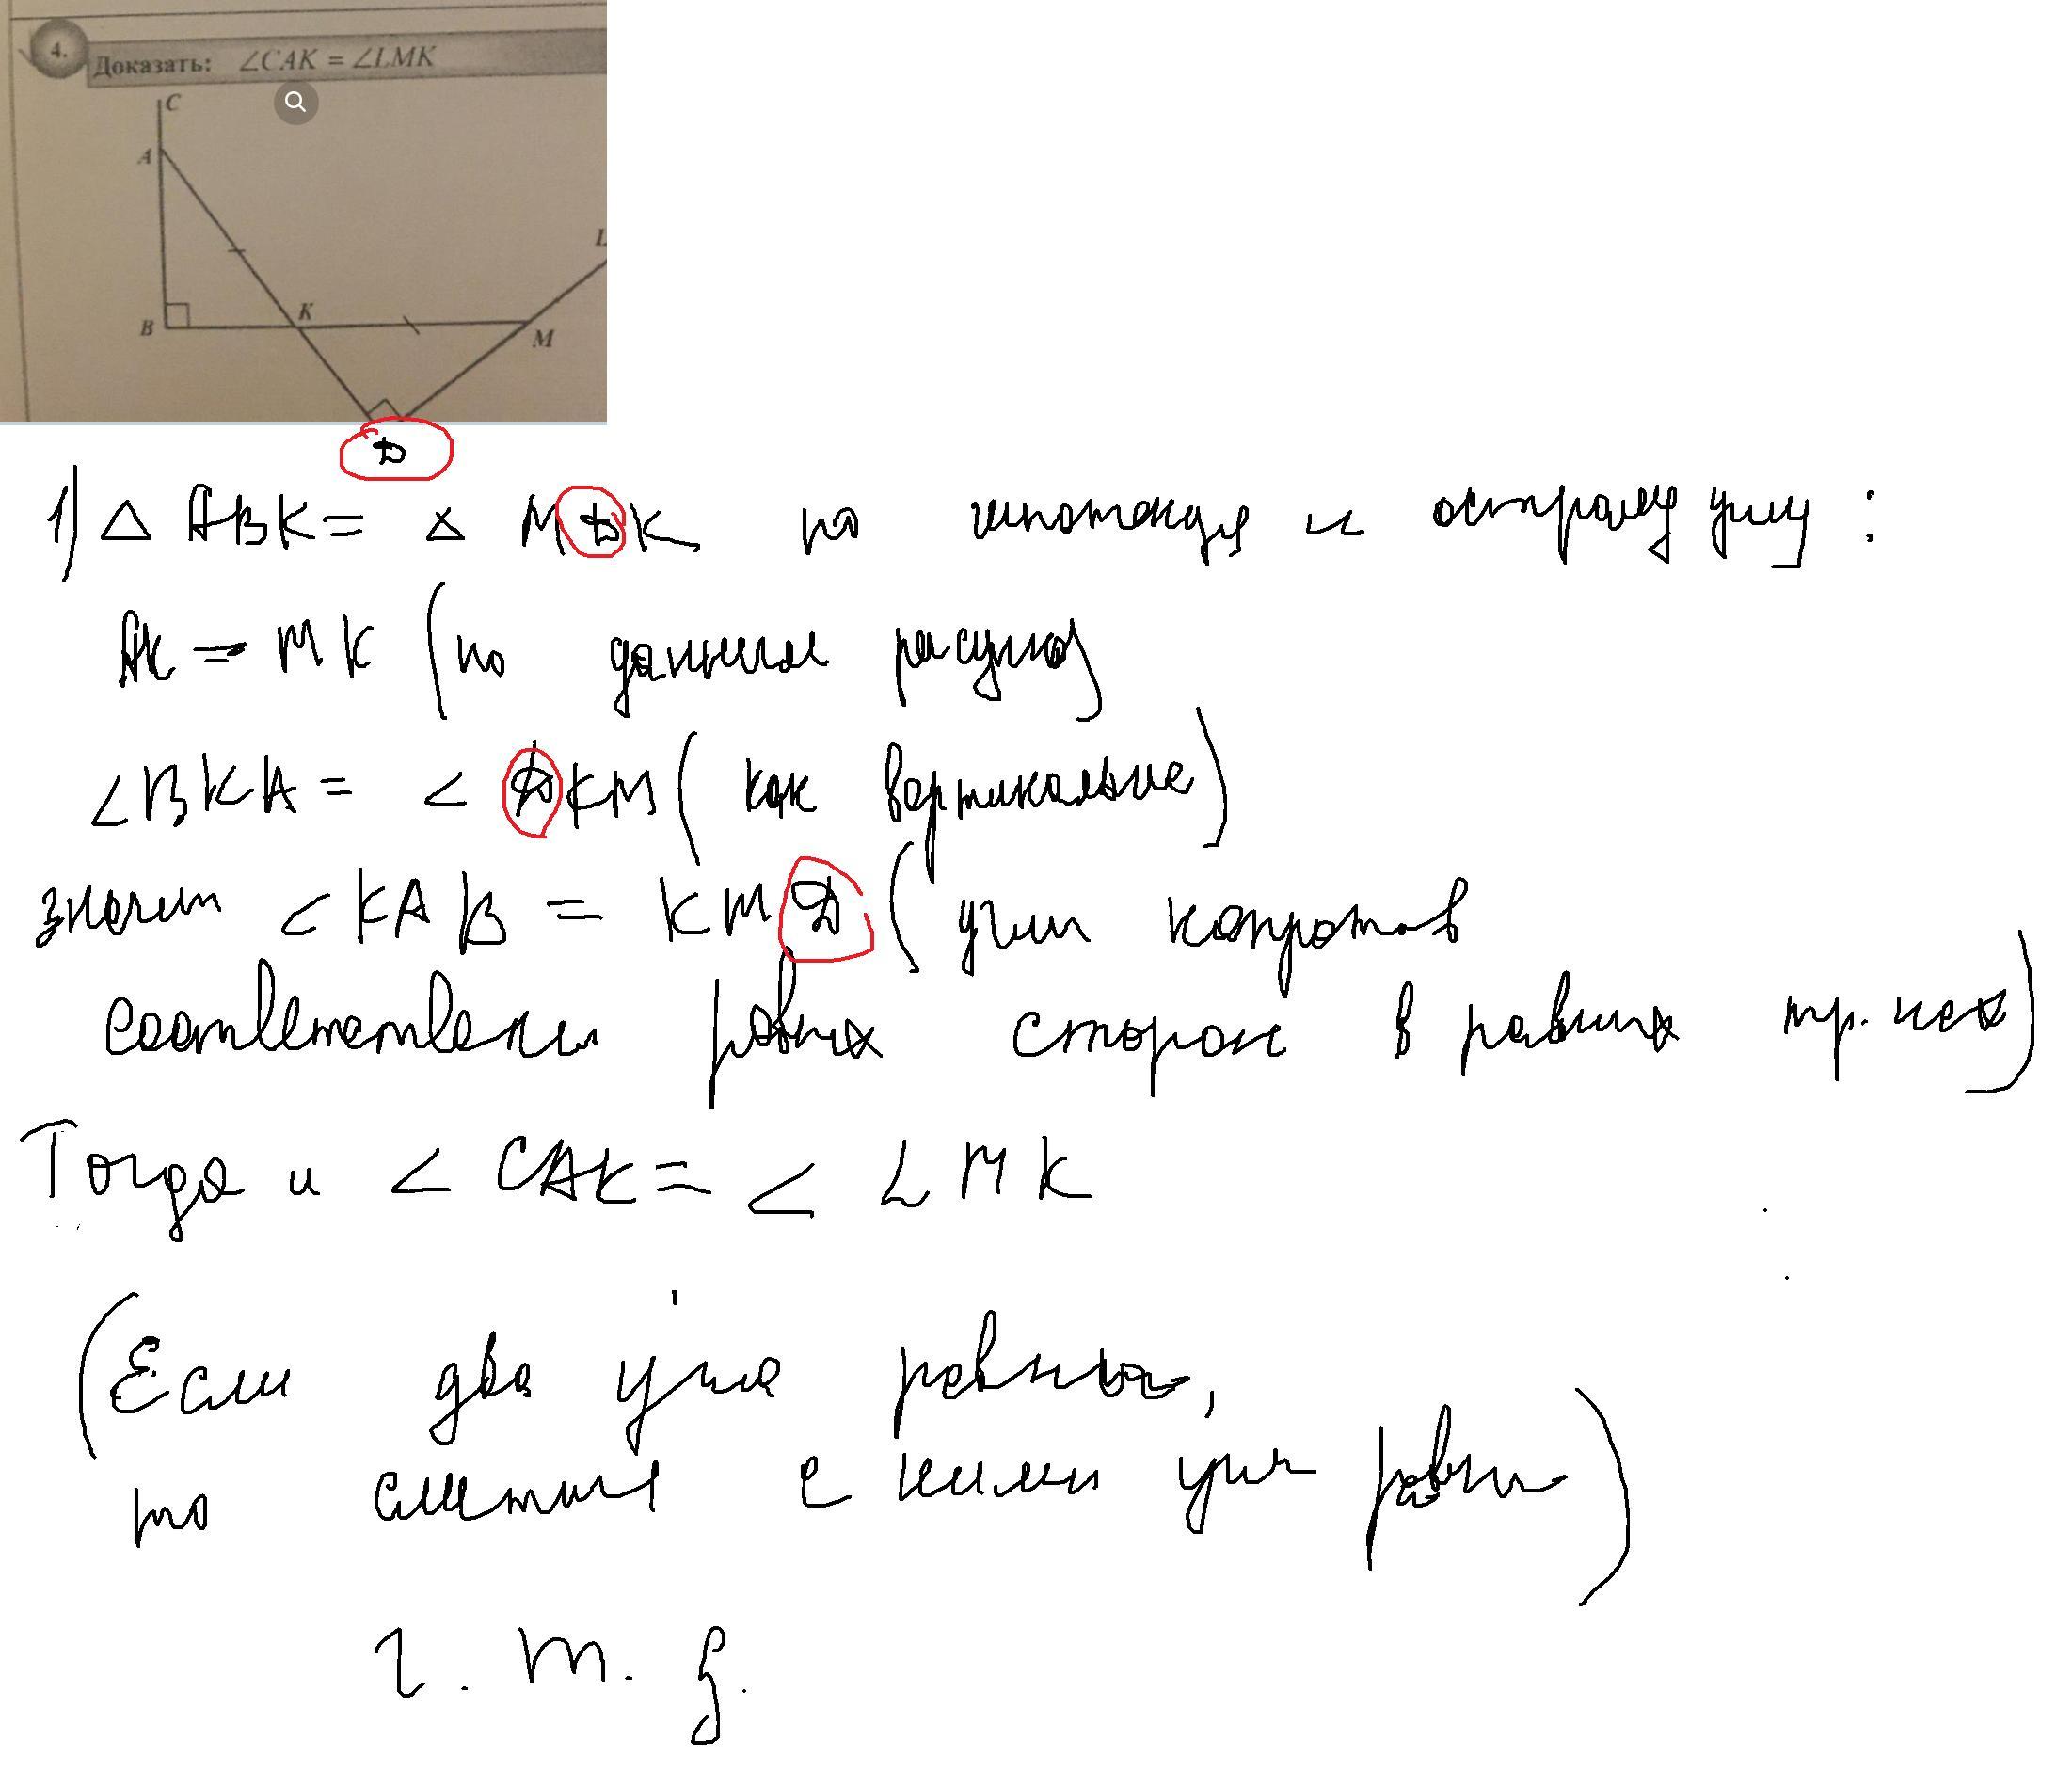 4.
Доказать: ∠CAK = ∠LMK
C
A
L
K
B
M
D
1) △ ABK = △ MDK по гипотенузе и острому углу :
AK = MK (по данным рисунка)
∠BKA = ∠ DKM ( как вертикальные)
значит ∠ KAB = KMD ( углы напротив
соответственно равных сторон в равных тр. ках)
Тогда и ∠ CAK = ∠ LMK
(Если два угла равны,
то смежные с ними углы равны)
ч. т. д.